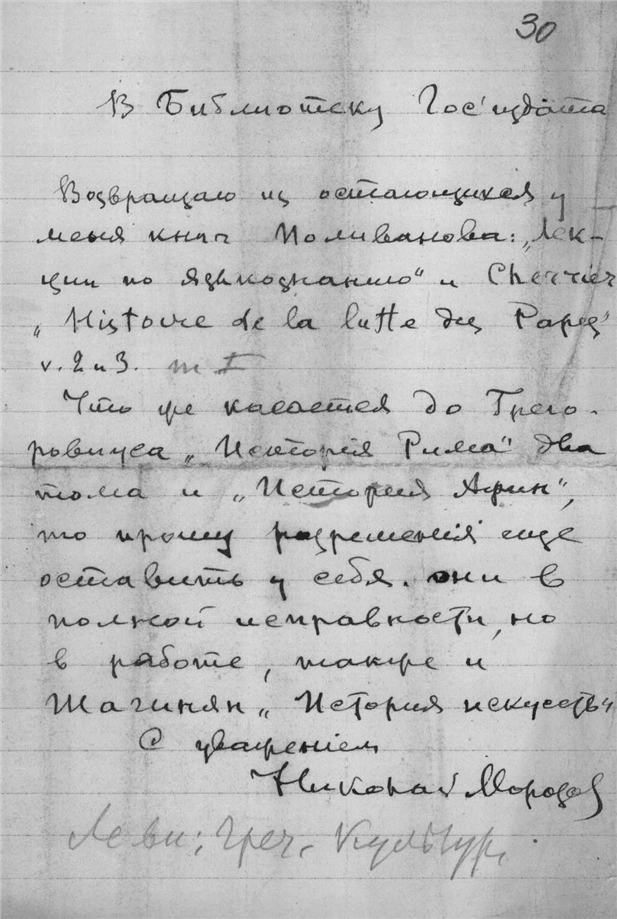 30
В Библиотеку Гос'издата
Возвращаю из остающихся у
меня книг Поливанова: „Лек-
ции по языкознанию" и Cherrier
„Histoire de la lutte des Papes"
v. 2 и 3. т I
Что же касается до Грего-
ровиуса „Исторія Рима" два
тома и „История Афин",
то прошу разрешенія еще
оставить у себя. они в
полной исправности, но
в работе, также и
Шагинян „История искусств"
С уваженіем
Николай Морозов
Леви: Греч. Культур.